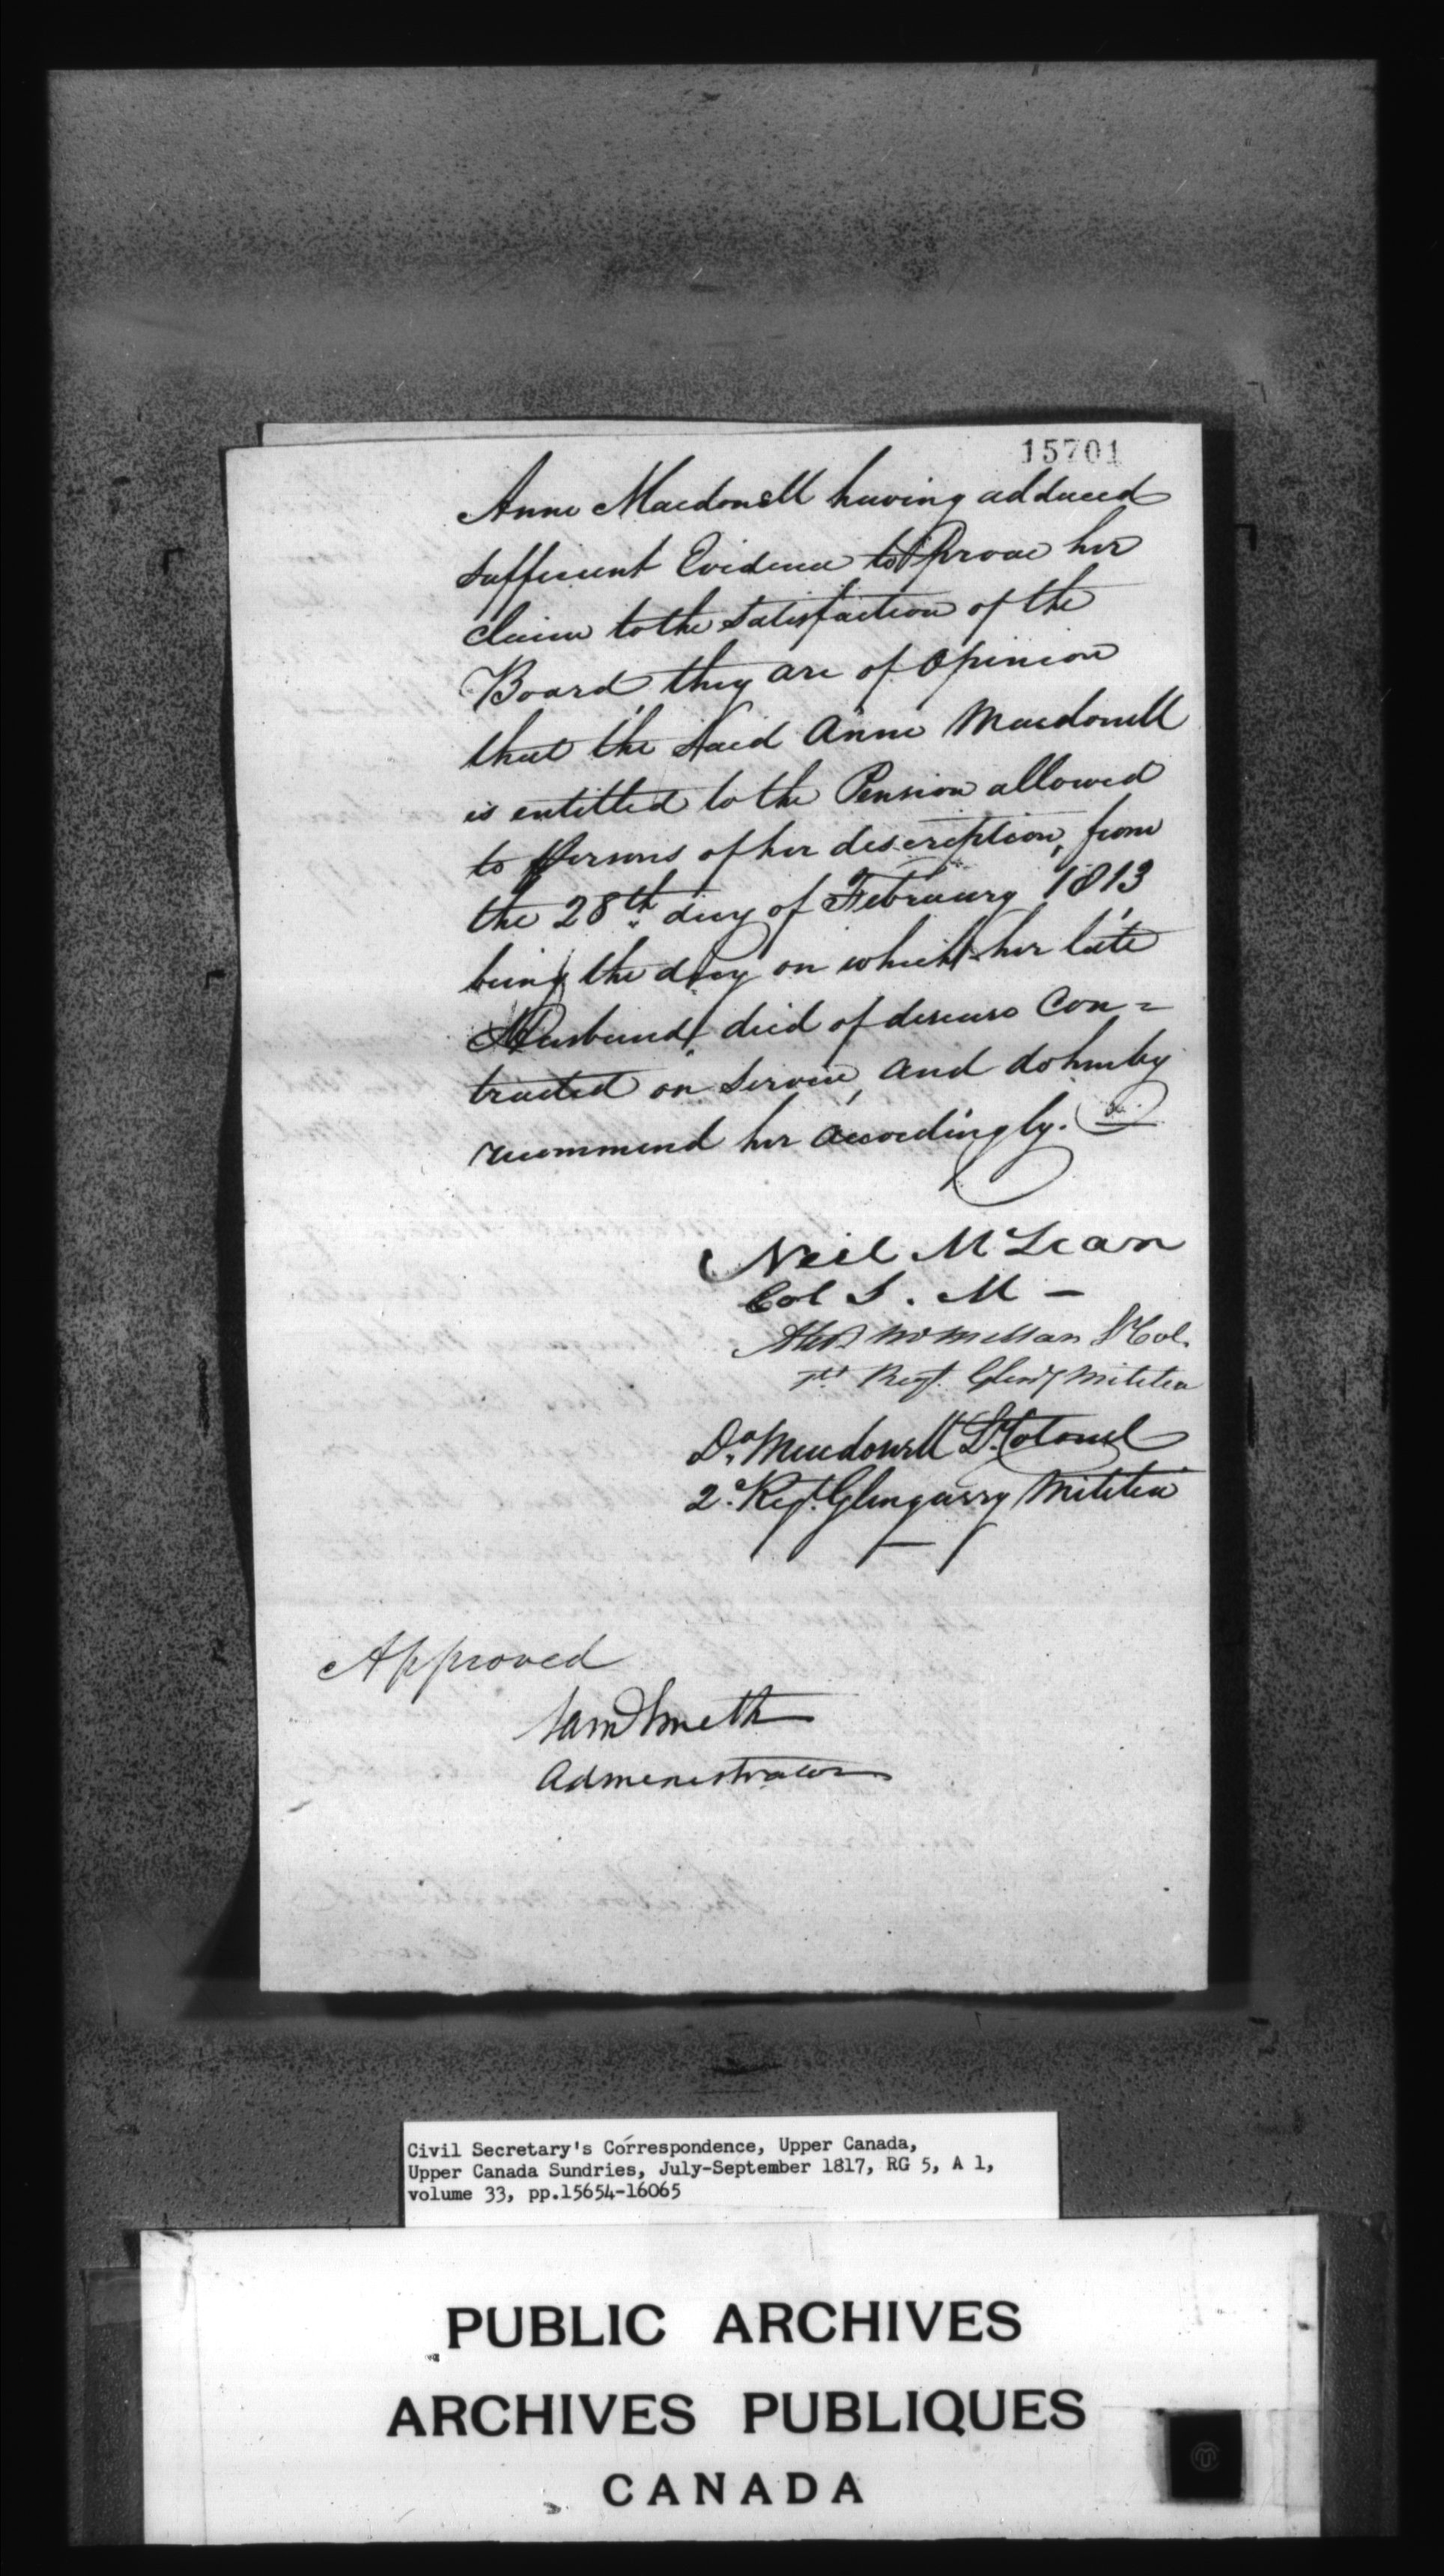 15701
Anne Macdonell having adduced
sufficient Evidence to Prove her
claim to the Satisfaction of the
Board they are of Opinion
that the Said Anne Macdonell
is entitled to the Pension allowed
to Persons of her description, from
the 28th day of February 1813
being the day on which her late
Husband died of disease Con=
tracted on Service, and do hereby
recommend her accordingly.
Neil McLean
Col S. M –
Alexr McMillan Lt Col.
1st Regt. Gleng'y Militia
Do. Macdonell Lt. Colonel
2d. Regt. Glengarry Militia
Approved
Sam Smith
Administrator
Civil Secretary's Correspondence, Upper Canada,
Upper Canada Sundries, July-September 1817, RG 5, A 1,
volume 33, pp.15654-16065
PUBLIC ARCHIVES
ARCHIVES PUBLIQUES
CANADA